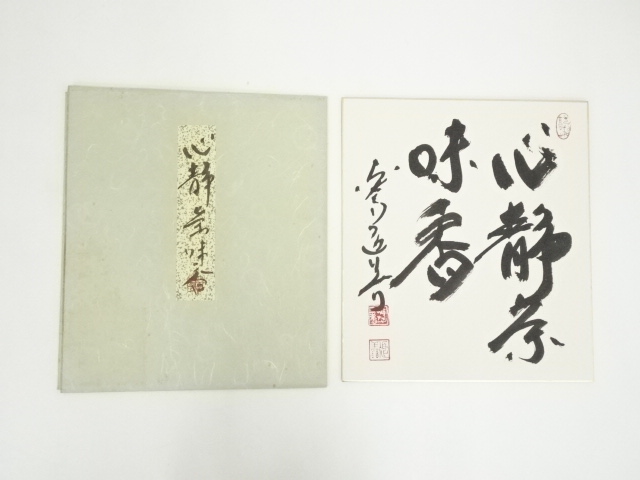 心静茶味香
心静茶
味香